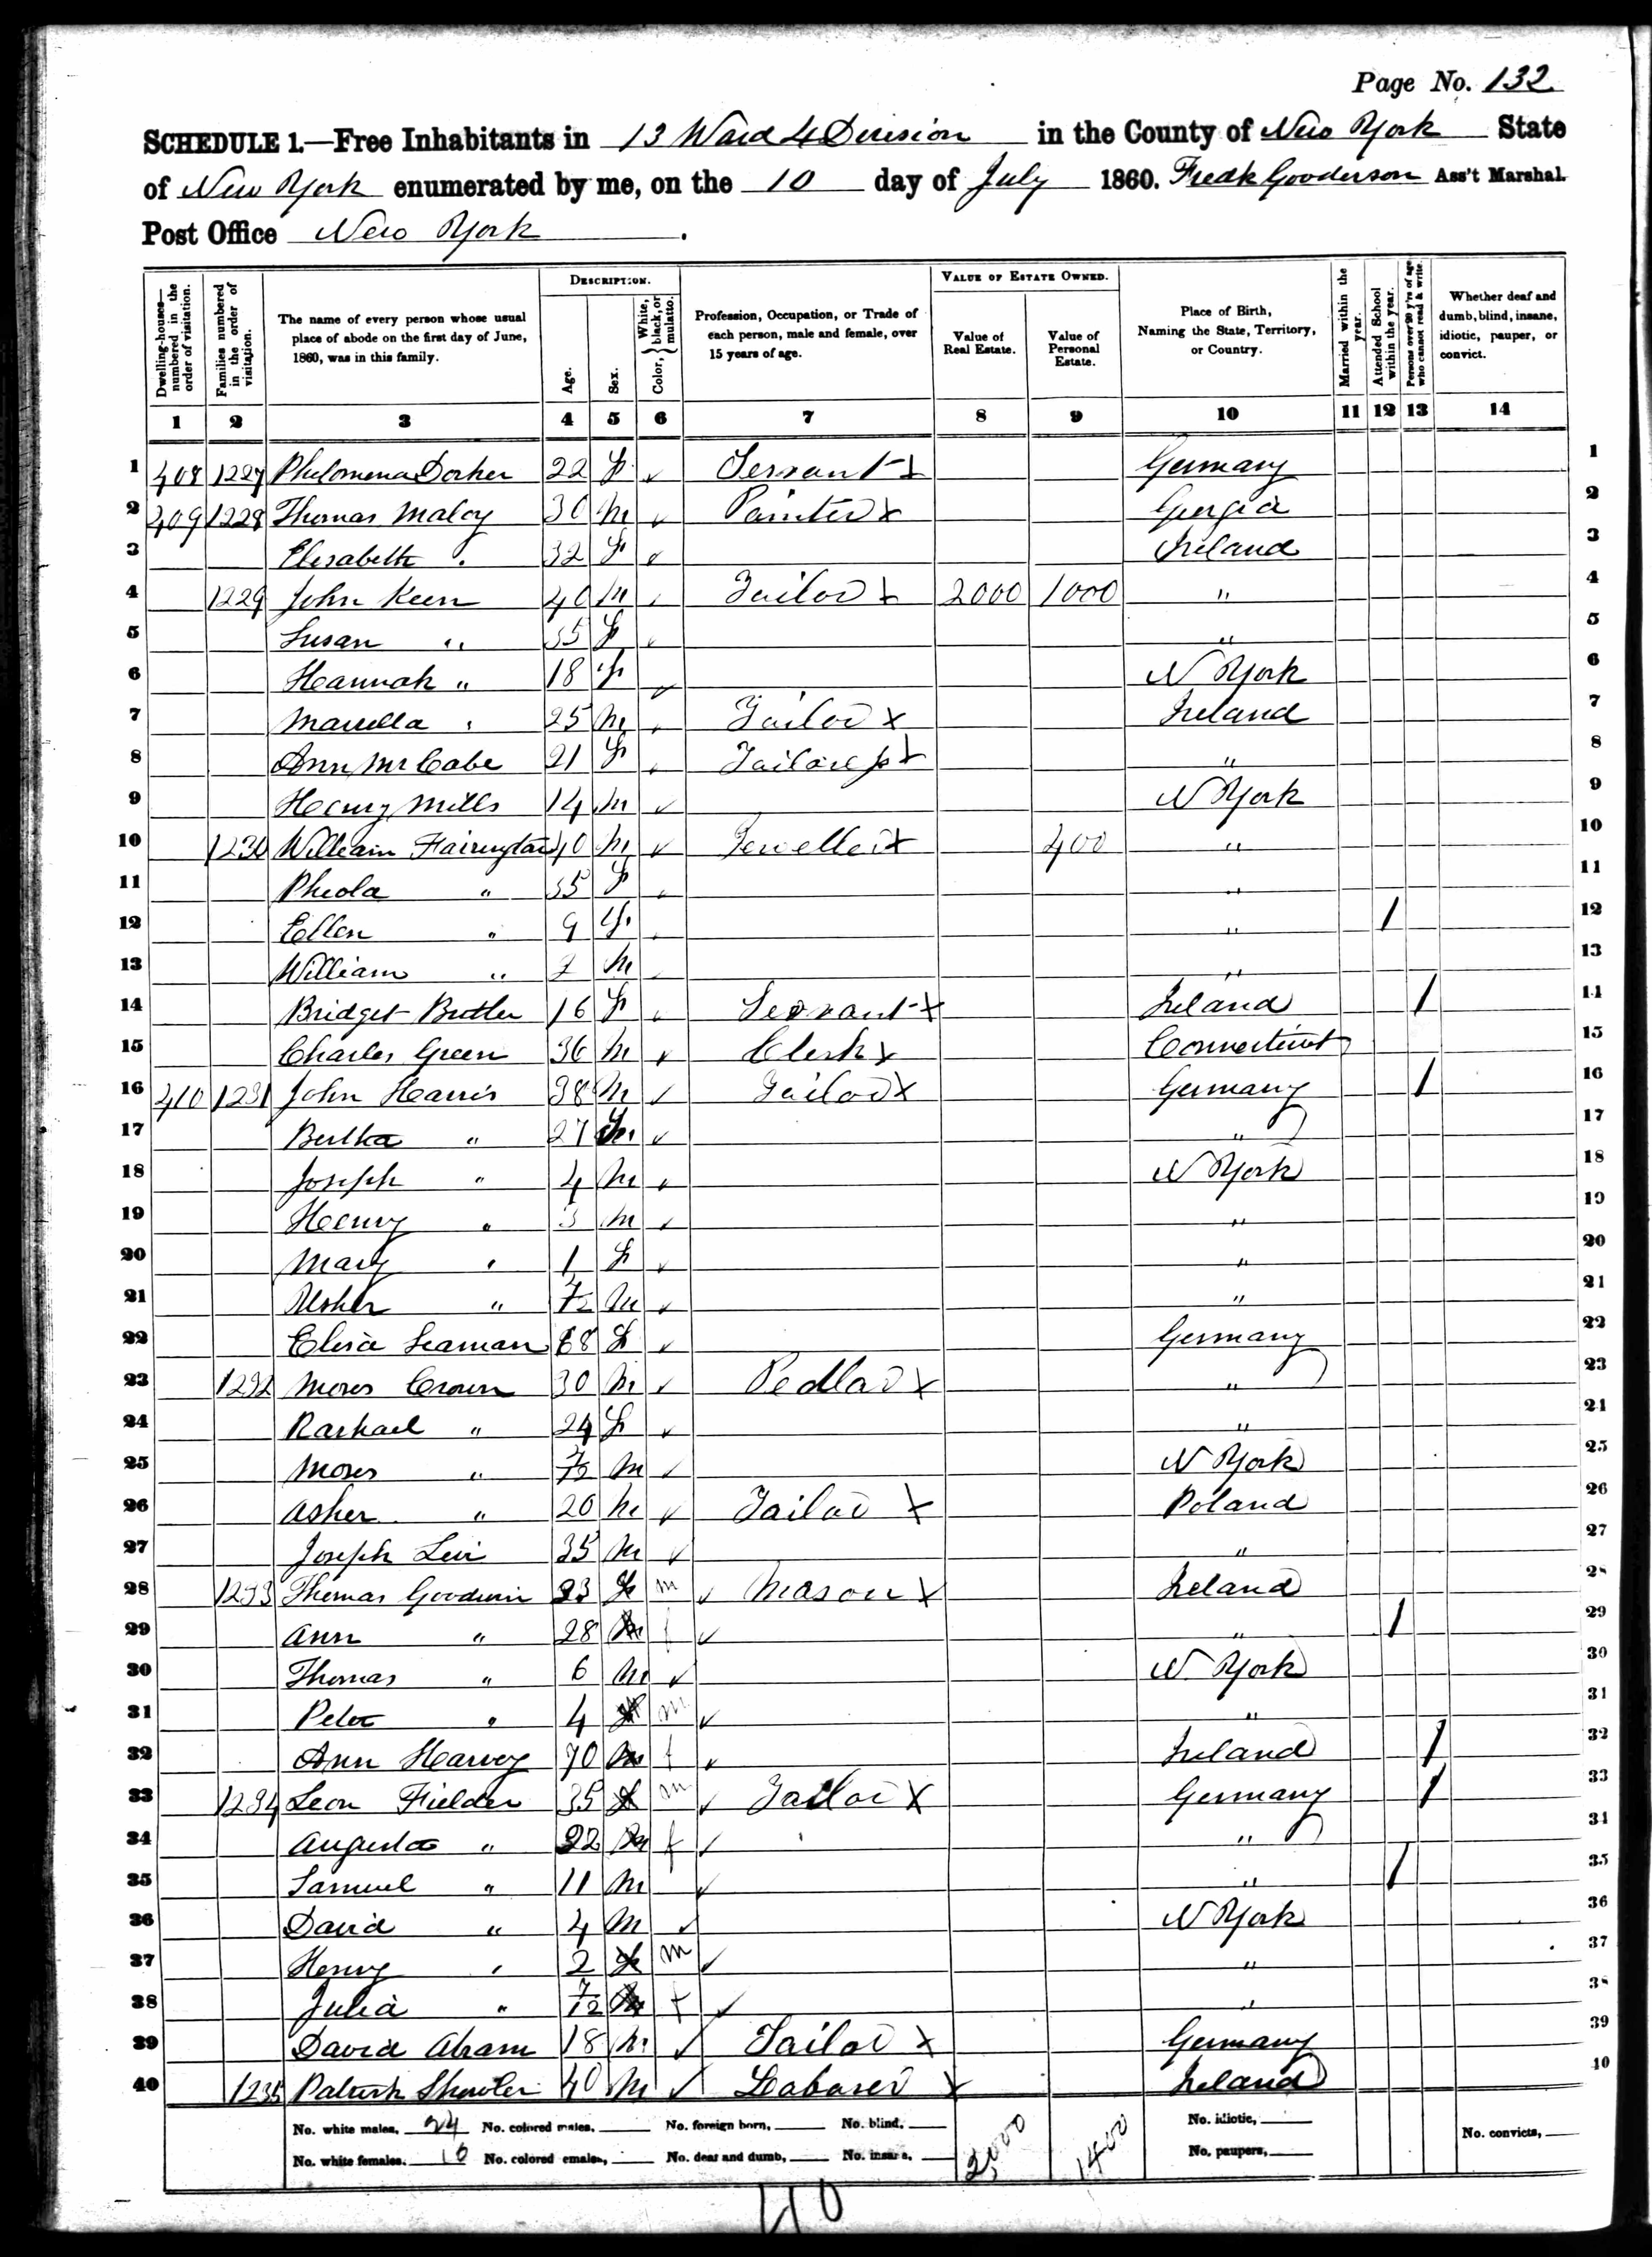 Page No. 132
SCHEDULE 1.—Free Inhabitants in 13 Ward 4 Division in the County of New York State
of New York enumerated by me, on the 10 day of July 1860. Fredk Gooderson Ass't Marshal.
Post Office New York.
DESCRIPTION. VALUE OF ESTATE OWNED.
Dwelling-houses—numbered in the order of visitation. Families numbered in the order of visitation. The name of every person whose usual place of abode on the first day of June, 1860, was in this family. Age. Sex. Color, { White, black, or mulatto. Profession, Occupation, or Trade of each person, male and female, over 15 years of age. Value of Real Estate. Value of Personal Estate. Place of Birth, Naming the State, Territory, or Country. Married within the year. Attended School within the year. Persons over 20 y'rs of age who cannot read & write. Whether deaf and dumb, blind, insane, idiotic, pauper, or convict.
1 2 3 4 5 6 7 8 9 10 11 12 13 14
1 408 1227 Philomena Dorher 22 f ✓ Servant x Germany 1
2 409 1228 Thomas Maloy 30 m ✓ Painter x Georgia 2
3 Elisabeth " 32 f ✓ Ireland 3
4 1229 John Keen 40 m ✓ Tailor x 2000 1000 " 4
5 Susan " 35 f ✓ " 5
6 Hannah " 18 f ✓ N York 6
7 Marcella " 25 m ✓ Tailor x Ireland 7
8 Ann McCabe 21 f ✓ Tailoress x " 8
9 Henry Mills 14 m ✓ N York 9
10 1230 William Fairington 40 m ✓ Jeweller x 400 " 10
11 Pheola " 35 f ✓ " 11
12 Ellen " 9 f ✓ " / 12
13 William " 2 m ✓ " 13
14 Bridget Butler 16 f ✓ Servant x Ireland / 14
15 Charles Green 36 m ✓ Clerk x Connecticut 15
16 410 1231 John Harris 38 m ✓ Tailor x Germany / 16
17 Bertha " 27 f ✓ " 17
18 Joseph " 4 m ✓ N York 18
19 Henry " 3 m ✓ " 19
20 Mary " 1 f ✓ " 20
21 " m ✓ " 21
22 Elisa Seaman 68 f ✓ Germany 22
23 1232 Moses Crown 30 m ✓ Pedlar x " 23
24 Rachael " 24 f ✓ " 24
25 Moses " m ✓ N York 25
26 Asher " 20 m ✓ Tailor x Poland 26
27 Joseph Levi 35 m ✓ " 27
28 1233 Thomas Goodwin 33 f m ✓ Mason x Ireland 28
29 Ann " 28 m f ✓ " / 29
30 Thomas " 6 m ✓ N York 30
31 Peter " 4 f m ✓ " 31
32 Ann Harvey 70 m f ✓ Ireland / 32
33 1234 Leon Fielder 35 f m ✓ Tailor x Germany / 33
34 Augusta " 32 m f ✓ " 34
35 Samuel " 11 m ✓ " / 35
36 David " 4 m ✓ N York 36
37 Henry " 2 f m ✓ " 37
38 Julia " 7/12 m f ✓ " 38
39 David Abram 18 m ✓ Tailor x Germany 39
40 1235 Patrick 40 m ✓ Laborer x Ireland 40
No. white males, 24 No. colored males, No. foreign born, No. blind, 2000 1400 No. idiotic, No. convicts,
No. white females, 16 No. colored emales, No. deaf and dumb, No. insane, No. paupers,
40